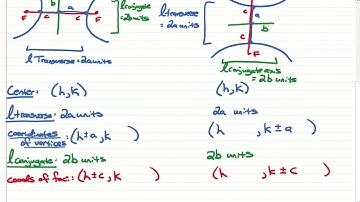 b
a
F c c F
l conjugate
= 2b units
l transverse = 2a units
l transverse
= 2a units
c a
b
F
l conjugate axis
= 2b units
Center: (h,k) (h,k)
l transverse: 2a units 2a units
coordinates of vertices: (h±a, k ) (h , k±a )
l conjugate: 2b units 2b units
coords of foci: (h±c, k ) (h , k±c )